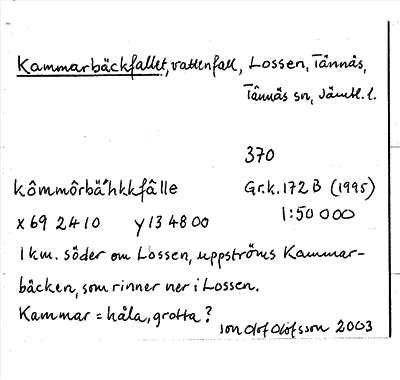 Kammarbäckfallet, vattenfall, Lossen, Tännäs,
Tännäs sn, Jämtl. l.
370
kômmôrbä́hkkfâlle Gr.k. 172 B (1995)
x 69 2410 y 13 48 00 1:50 000
1 km. söder om Lossen, uppströms Kammar-
bäcken, som rinner ner i Lossen.
Kammar = håla, grotta?
Jon Olof Olofsson 2003